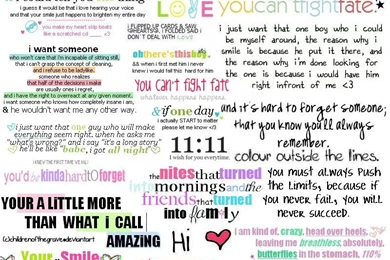 i guess it would be that i love hearing your voice
and that your smile just happens to brighten my entire day
you make my heart skip beats
i want someone
who won't care that i'm incapable of sitting still,
that i can't grasp the concept of cleaning,
and i refuse to be ladylike.
someone who realizes
half of the decisions i make
are usually ones i regret,
and i have the right to overreact at any given moment.
i want someone who knows how completely insane i am,
& he wouldn't want me any other way.
i just want that one guy who will make
everything seem right. when he asks me
"what's wrong?" and i say "it's a long story"
he'll be like "babe, i got all night"
you'd be kinda hard to forget
YOUR A LITTLE MORE
THAN WHAT i CALL
AMAZING
Your Smile
LOVE
i FLIPPED UP CARDS & SAW
HEARTS
DON'T DEAL WITH LOVE
oh there's this boy
and let me tell you i never
knew i would fall this hard for him
you can't fight fate
whatever happens happens
& if one day
actually start to matter
please let me know <3
11:11
I wish for you everyday.
the nites that turned
into mornings and the
friends that turned
into family
Hi
you can't fight fate.
i just want that one boy who i could
be myself around, the reason why i
smile is because he put it there, and
the reason why i'm done looking for
the one is because i would have him
right infront of me <3
and it's hard to forget someone;
that you know you'll always
remember.
colour outside the lines.
You must always push
the limits, because if
you never fail, you will
never succeed.
i am kind of, crazy, head over heels,
leaving me breathless absolutely,
butterflies in the stomach, 110%